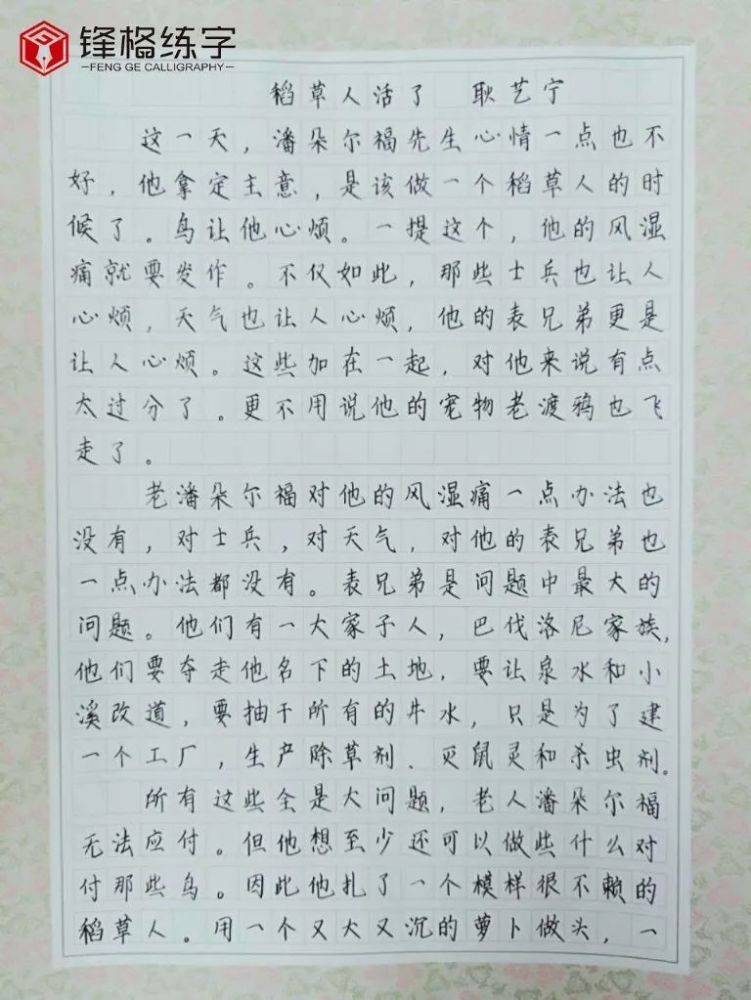 锋格练字
FENG GE CALLIGRAPHY
稻草人活了 耿艺宁
这一天，潘朵尔福先生心情一点也不
好，他拿定主意，是该做一个稻草人的时
候了。鸟让他心烦。一提这个，他的风湿
痛就要发作。不仅如此，那些士兵也让人
心烦，天气也让人心烦，他的表兄弟更是
让人心烦。这些加在一起，对他来说有点
太过分了。更不用说他的宠物老渡鸦也飞
走了。
老潘朵尔福对他的风湿痛一点办法也
没有，对士兵，对天气，对他的表兄弟也
一点办法都没有。表兄弟是问题中最大的
问题。他们有一大家子人，巴伐洛尼家族，
他们要夺走他名下的土地，要让泉水和小
溪改道，要抽干所有的井水，只是为了建
一个工厂，生产除草剂、灭鼠灵和杀虫剂。
所有这些全是大问题，老人潘朵尔福
无法应付。但他想至少还可以做些什么对
付那些鸟。因此他扎了一个模样很不赖的
稻草人。用一个又大又沉的萝卜做头，一